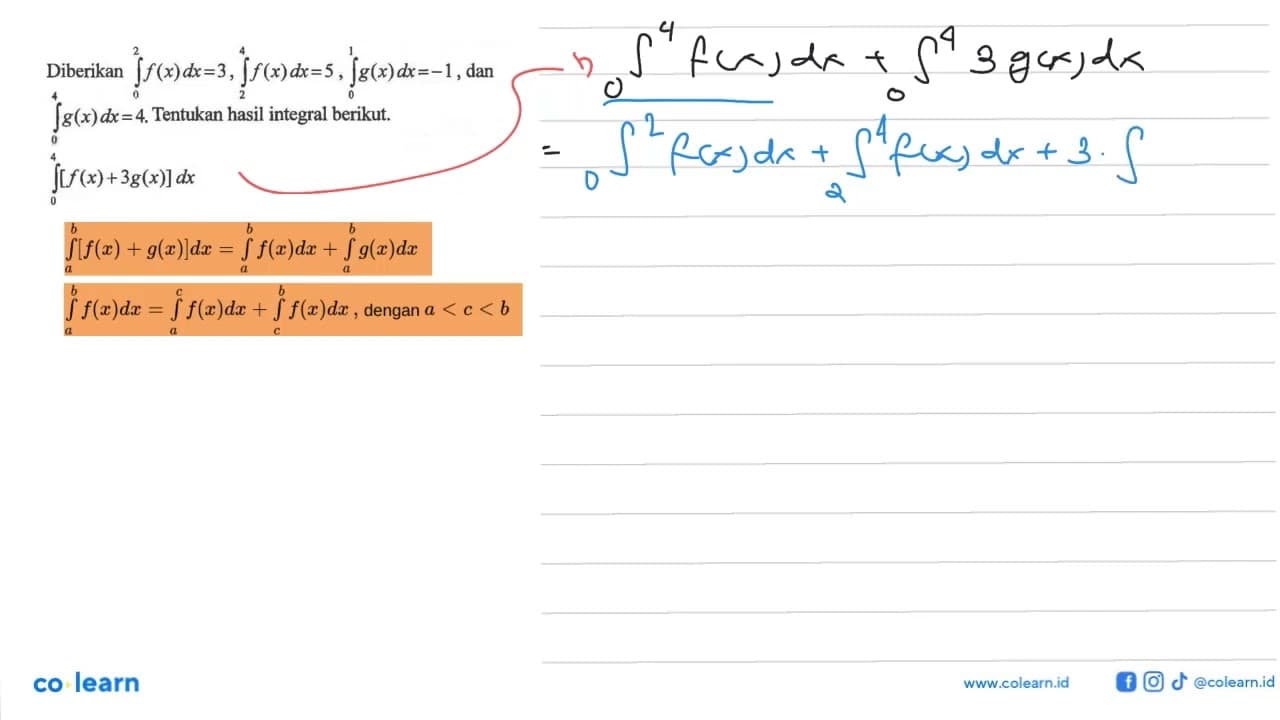 Diberikan ∫₀² f(x) dx = 3, ∫₂⁴ f(x) dx = 5, ∫₀¹ g(x) dx = −1, dan
∫₀⁴ g(x) dx = 4. Tentukan hasil integral berikut.
∫₀⁴ [f(x) + 3g(x)] dx
∫ₐᵇ [f(x) + g(x)]dx = ∫ₐᵇ f(x)dx + ∫ₐᵇ g(x)dx
∫ₐᵇ f(x)dx = ∫ₐᶜ f(x)dx + ∫꜀ᵇ f(x)dx , dengan a < c < b
∫₀⁴ f(x) dx + ∫₀⁴ 3 g(x) dx
= ∫₀² f(x) dx + ∫₂⁴ f(x) dx + 3 . ∫
co learn
www.colearn.id
@colearn.id